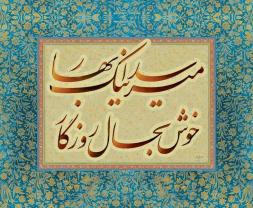 میرسد اینک بهار
خوش بحال روزگار